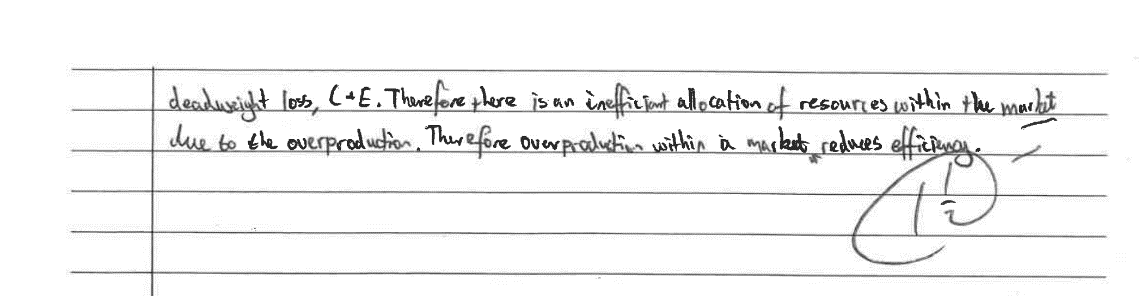 deadweight loss, C+E. Therefore there is an inefficient allocation of resources within the market
due to the overproduction. Therefore overproduction within a market reduces efficiency.
1 1/2